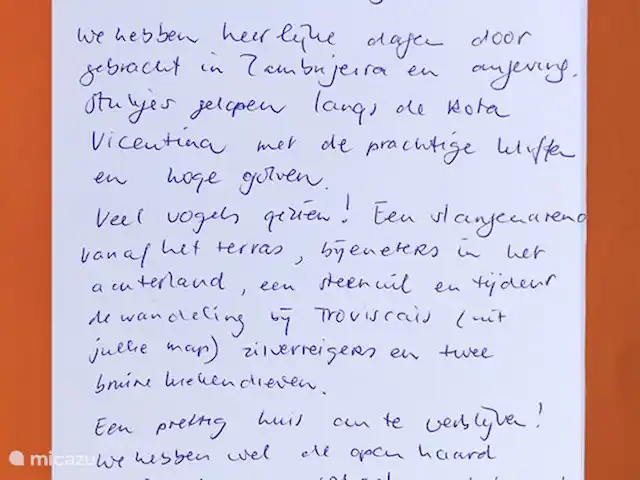 We hebben heerlijke dagen door
gebracht in Zambujeira en omgeving.
Stukjes gelopen langs de Rota
Vicentina met de prachtige kliffen
en hoge golven.
Veel vogels gezien! Een slangenarend
vanaf het terras, bijeneters in het
achterland, een steenuil en tijdens
de wandeling bij Troviscais (uit
jullie map) zilverreigers en twee
bruine kiekendieven.
Een prettig huis om te verblijven!
We hebben wel de open haard
micazu